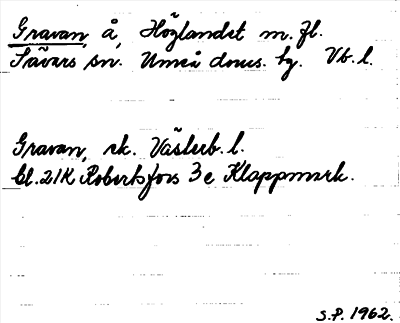 Gravan, å, Höglandet m.fl.
Sävars sn. Umeå doms. hg. Vb. l.
Gravan, rk. Västerb. l.
bl. 21K Robertsfors 3e Klappmark.
S.P. 1962.